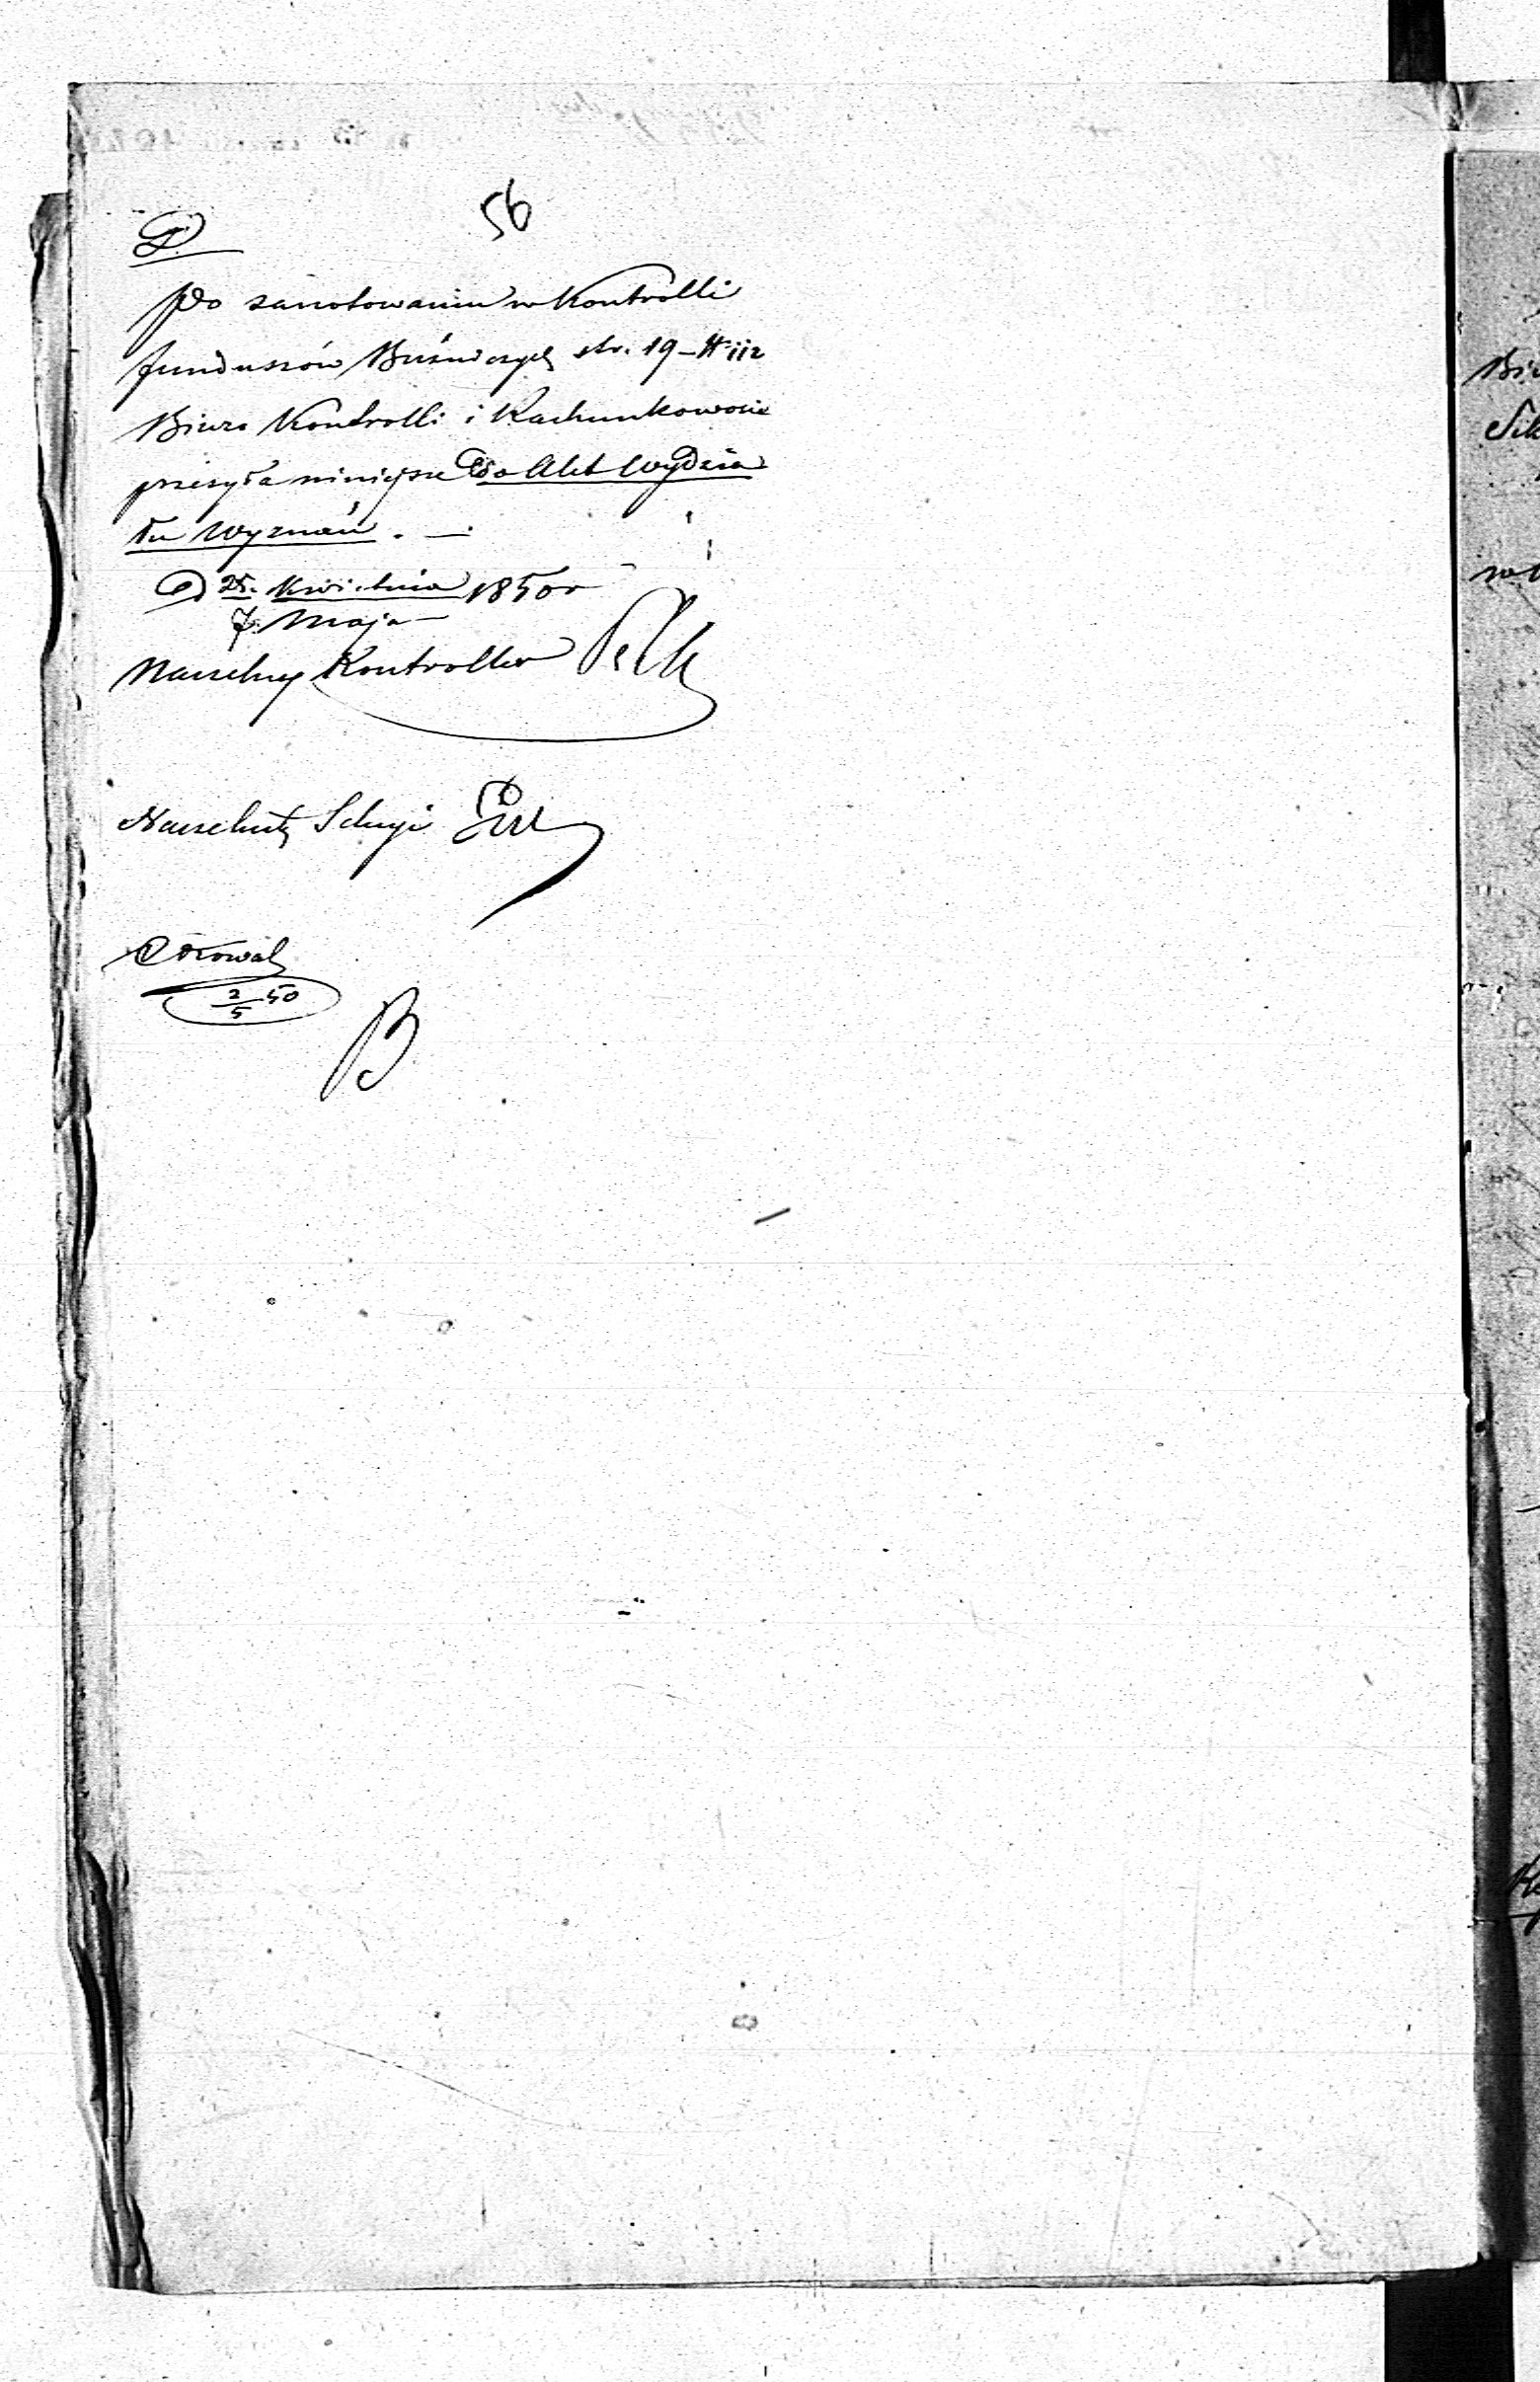 56
D.
Po zanotowaniu w Kontrolli
funduszów Bużniczych str. 19 – N
Biuro Kontrolli i Rachunkowości
przesyła niniejsze Do Akt Wydzia
łu Wyznań. —
D 25. Kwietnia 1850 r
7. Maja —
Naczelny Kontroller
Naczelnik Sekcyi
2/5 50
B